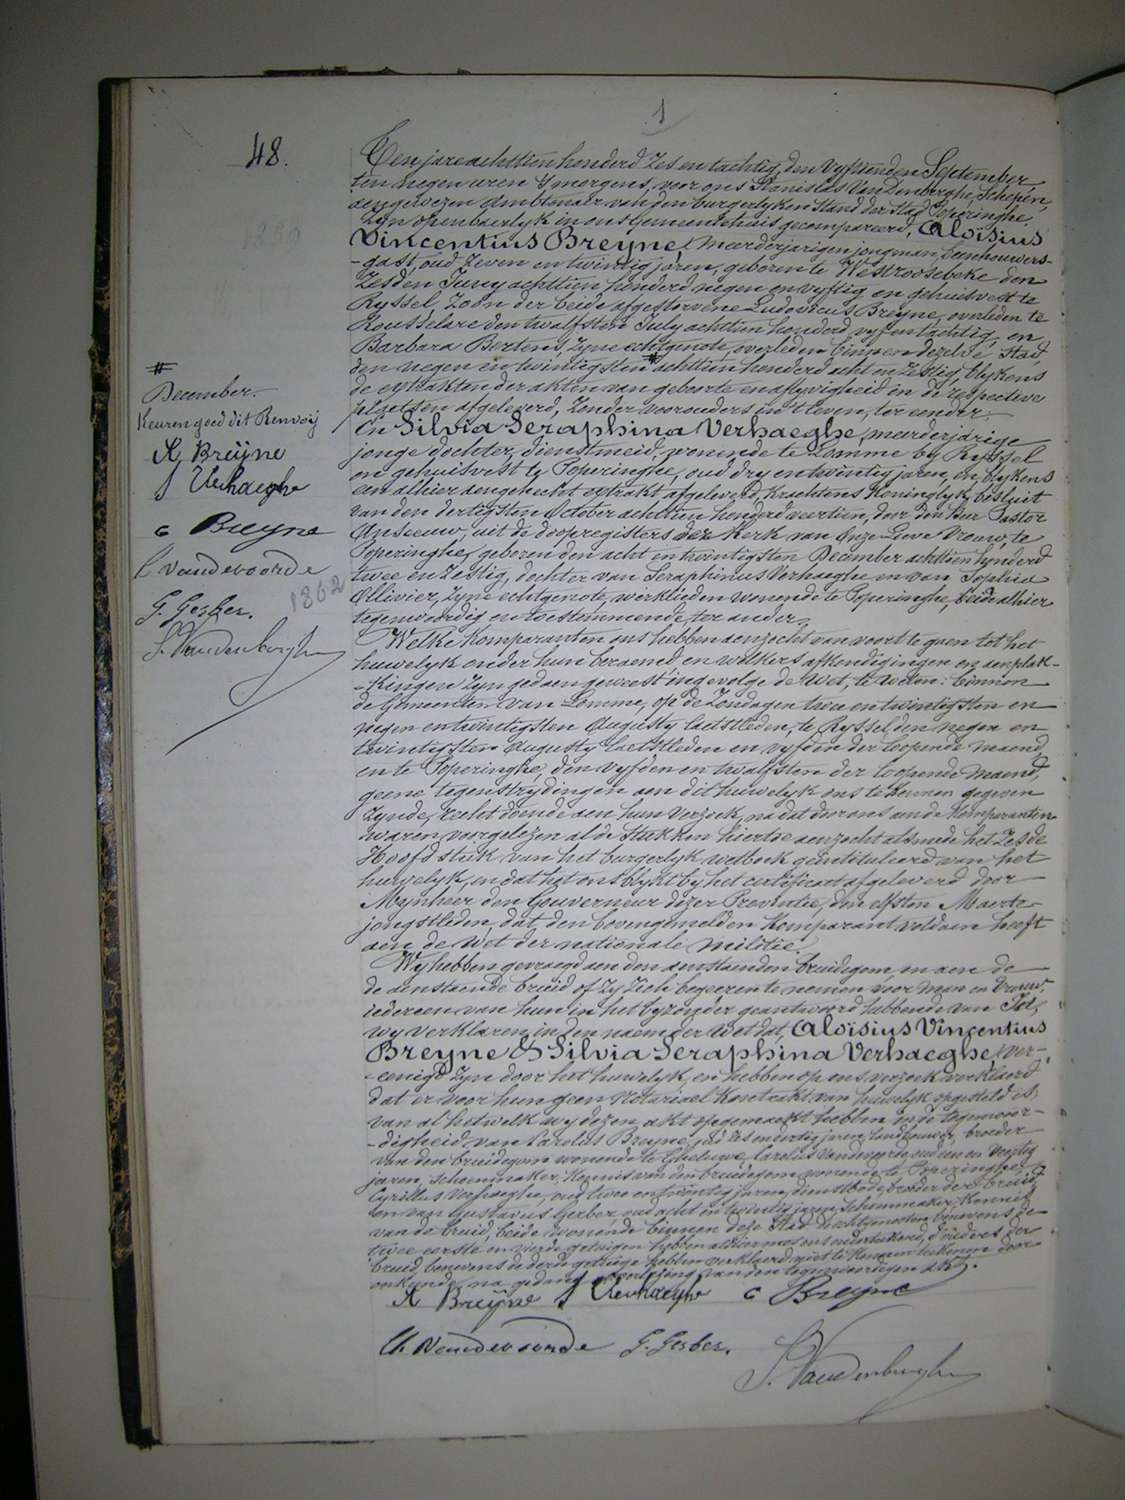 1
48.
Ten jare achttien honderd zes en tachtig, den vyftienden September
ten negen uren 's morgens, voor ons Stanislas Vandenberghe, Schepen,
aengewezen Ambtenaer van den burgerlyken Stand der Stad Poperinghe
Zyn openbaerlyk in ons Gemeentehuis gecompareerd, Aloisius
Vincentius Breyne, meerderjarigen jongman, Steenhouwers-
-gast, oud zeven en twintig jaren, geboren te Westroosebeke den
Zesden Juny achttien honderd negen en vyftig en gehuisvest te
Ryssel, Zoon der beide afgestorvene Ludovicus Breyne, overleden te
Rousselare den twalfsten July achttien honderd vyf en tachtig, en
Barbara Bertens, zyne echtgenote, overleden binnen dezelve Stad
den negen en twintigsten # achttien honderd acht en zestig, blykens
de extrakten der akten van geboorte en aflyvigheid in de respective
plaetsen afgeleverd, zonder voorouders in 't leven, ter eender.
En Silvia Seraphina Verhaeghe, meerderjarige
jonge dochter, dienstmeid, wonende te Lomme by Ryssel
en gehuisvest te Poperinghe, oud dry en twintig jaren, en blykens
een alhier aengehecht extrakt afgeleverd, krachtens Koninglyk besluit
van den dertigsten October achttien honderd veertien, door den heer Pastor
Anseeuw, uit de doopregisters der Kerk van Onze Lieve Vrouw, te
Poperinghe, geboren den acht en twintigsten December achttien honderd
twee en zestig, dochter van Seraphinus Verhaeghe en van Sophia
Ollivier, zyne echtgenote, werklieden wonende te Poperinghe, beide alhier
tegenwoordig en toestemmende, ter ander.
Welke Komparanten ons hebben aenzocht van voort te gaen tot het
huwelyk onder hun beraemd en welkers afkondigingen en aenplak-
-kingen zyn gedaen geweest ingevolge de Wet, te weten: binnen
de Gemeenten van Lomme, op de Zondagen twee en twintigsten en
negen en twintigsten Augusty laetstleden, te Ryssel den negen en
twintigsten Augusty laetstleden en vyfden der loopende maend,
en te Poperinghe, den vyfden en twalfsten der loopende maend,
geene tegenstrydingen aen dit huwelyk ons te kennen gegeven
zynde, recht doende aen hun verzoek, na dat door ons aen de Komparanten
waren voorgelezen al de stukken hiertoe aenzocht alsmede het Zesde
Hoofdstuk van het burgerlyk wetboek geintituleerd van het
huwelyk, en dat het ons blykt by het certificaet afgeleverd door
Mynheer den Gouverneur dezer Provintie, den elfsten Maerte
jongstleden, dat den bovengemelden Komparant voldaen heeft
aen de Wet der nationale militie.
Wy hebben gevraegd aen den aenstaenden bruidegom en aen de
de aenstaende bruid of zy zich begeeren te nemen voor man en vrouw,
iedereen van hun in het byzonder geantwoord hebbende van Ja,
wy verklaren in den naem der Wet dat, Aloisius Vincentius
Breyne & Silvia Seraphina Verhaeghe, ver-
-eenigd zyn door het huwelyk, en hebben op ons verzoek verklaerd
dat er voor hun geen Notariael Kontrakt van huwelyk opgesteld is,
van al hetwelk wy dezen akt opgemaekt hebben in de tegenwoor-
-digheid van Carolus Breyne, oud zes en dertig jaren, landbouwer, broeder
van den bruidegom wonende te Gheluwe, Carolus Vandevoorde, oud een en veertig
jaren, schoenmaker, Kennis van den bruidegom wonende te Poperinghe,
Cyrillus Verhaeghe, oud twee en twintig jaren, dienstbode, broeder der bruid
en van Gustavus Gerber, oud acht en twintig jaren, schoenmaker, Kennis
van de bruid, beide wonende binnen deze Stad. De echtgenoten benevens de
twee eerste en vierde getuigen hebben alhier met ons onderteekend, d'ouders der
bruid benevens de derde getuige hebben verklaerd niet te kunnen teekenen door
onkunde, na gedane voorlezing van den tegenwoordigen akt.
A Breÿne S Verhaeghe C Breyne
Ch Vandevoorde G. Gerber.
S. Vandenberghe
#
December.
Keuren goed dit Renvoÿ
A Breÿne
S Verhaeghe
C Breyne
C Vandevoorde
G. Gerber. 1862
S. Vandenberghe